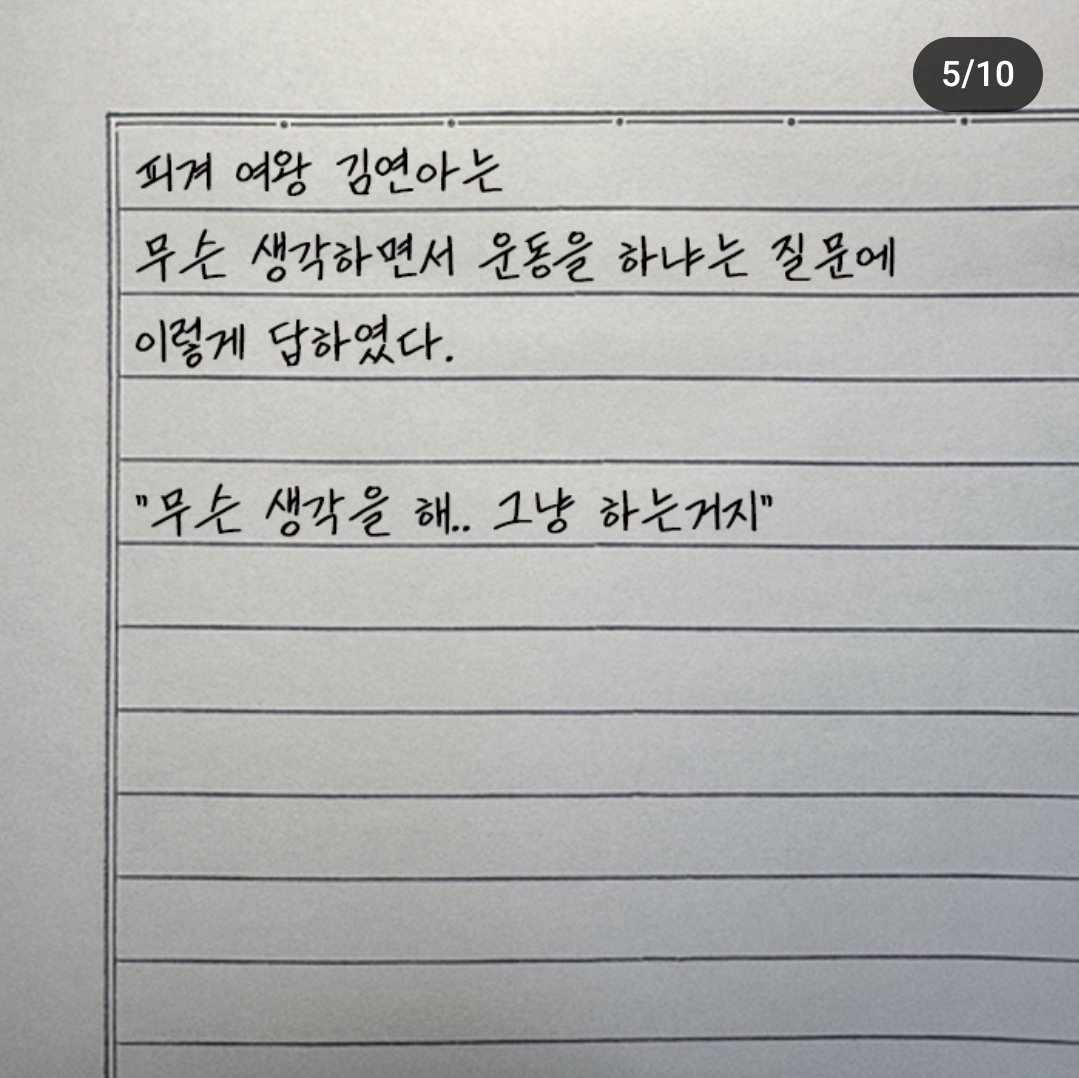 5/10
피겨 여왕 김연아는
무슨 생각하면서 운동을 하냐는 질문에
이렇게 답하였다.
"무슨 생각을 해.. 그냥 하는거지"